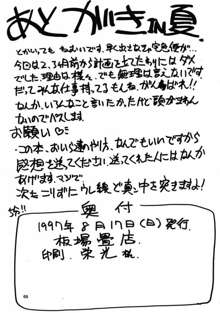 あとがき IN 夏.
とかいっても ねむいです。早く出さなきゃ宅急便が…
今回は2、3ヶ月前から計画を立てたわりにはダメ
でした。理由は様々、でも無理は言えないです。
だってみんな仕事持ってるもんね。がんばれ!!
なんか、いろんなこと言いたかったけど頭がまわん
ないのでパスします。
お願い
・この本、おいら達のやり方、なんでもいいですから
感想を送ってください。送ってくれた人にはなんか
あげます。マジで
次もこりずにウレ線ど真中を突きますぞ!
奥付
1997年8月17日(日)発行.
板場畳店
印刷. 栄光様.